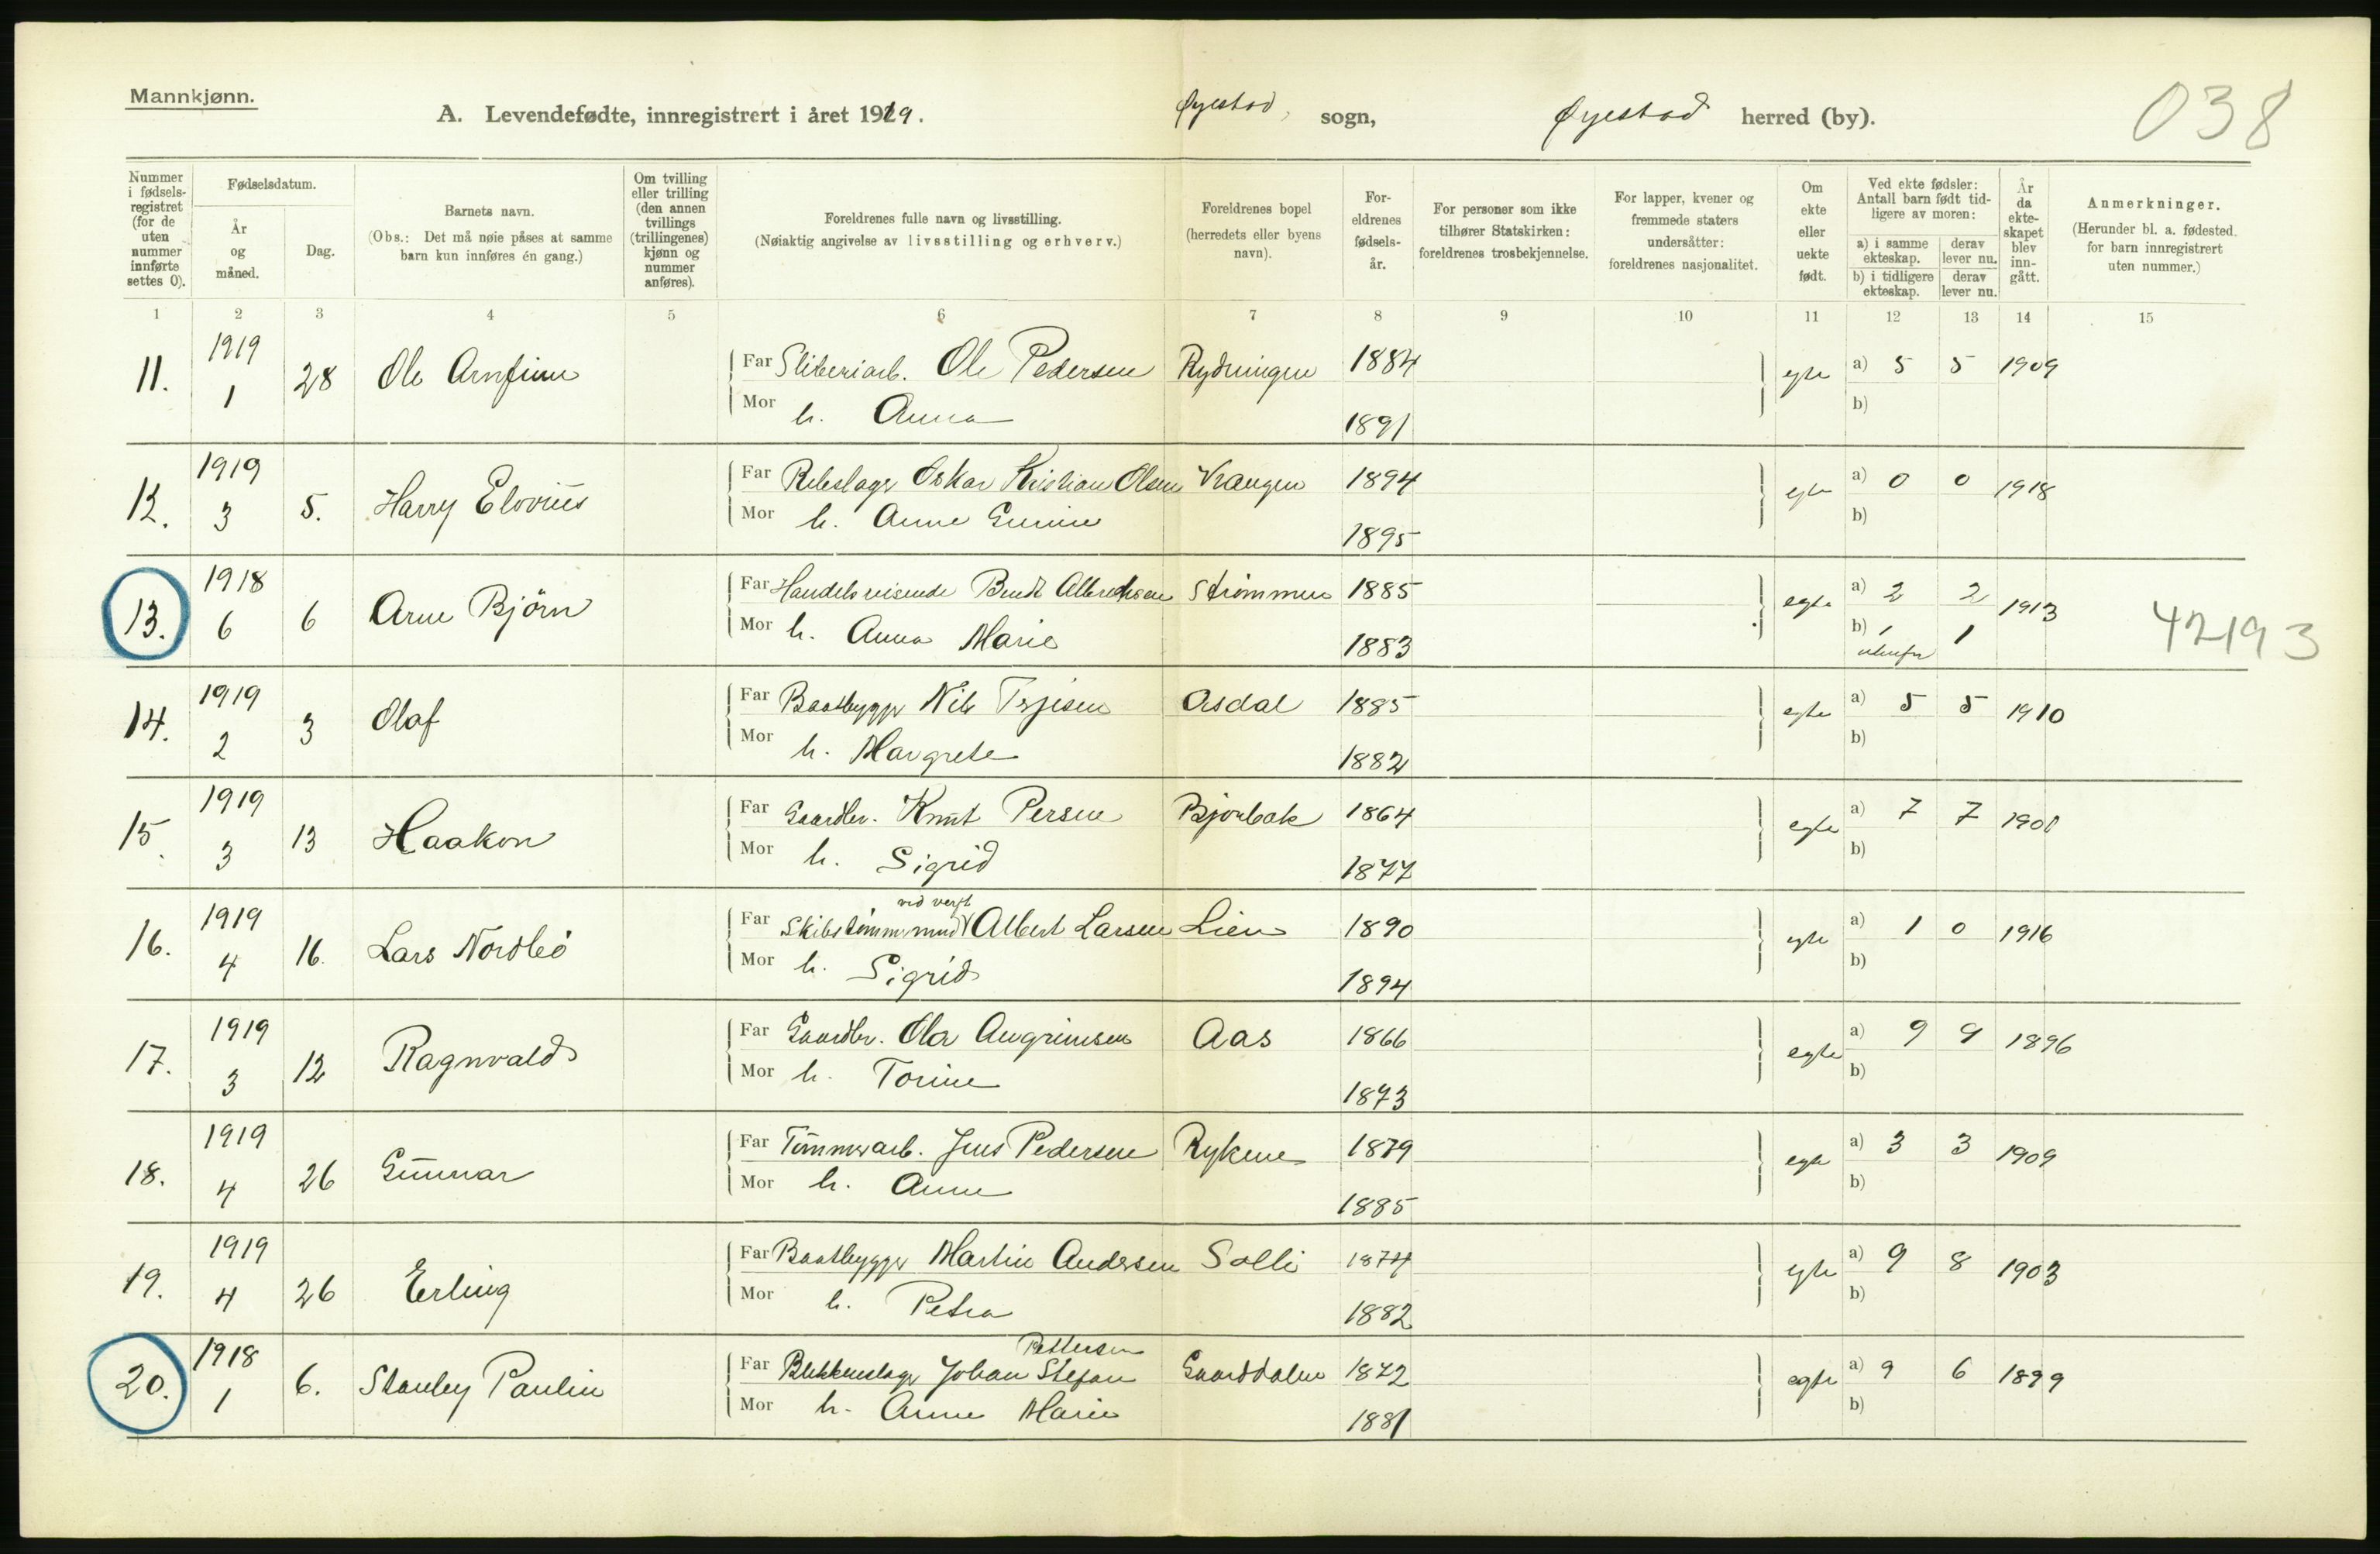 Mannkjønn.
A. Levendefødte, innregistrert i året 1919. Øyestad, sogn, Øyestad herred (by). 038
Nummer i fødsels-registret (for de uten nummer innførte settes 0).
Fødselsdatum.
År og måned.
Dag.
Barnets navn.
(Obs.: Det må nøie påses at samme barn kun innføres én gang.)
Om tvilling eller trilling (den annen tvillings (trillingenes) kjønn og nummer anføres).
Foreldrenes fulle navn og livsstilling.
(Nøiaktig angivelse av livsstilling og erhverv.)
Foreldrenes bopel (herredets eller byens navn).
For-eldrenes fødsels-år.
For personer som ikke tilhører Statskirken: foreldrenes trosbekjennelse.
For lapper, kvener og fremmede staters undersåtter: foreldrenes nasjonalitet.
Om ekte eller uekte født.
Ved ekte fødsler: Antall barn født tid-ligere av moren:
a) i samme ekteskap. derav lever nu.
b) i tidligere ekteskap. derav lever nu.
År da ekte-skapet blev inn-gått.
Anmerkninger.
(Herunder bl. a. fødested for barn innregistrert uten nummer.)
1 2 3 4 5 6 7 8 9 10 11 12 13 14 15
11. 1919 1 28 Ole Arnfinn Far Sliberiarb. Ole Pedersen Rydningen 1884 egte a) 5 5 1909
Mor h. Anna 1891 b)
12. 1919 3 5. Harry Elovius Far Rebslager Oskar Kristian Olsen Vrangen 1894 egte a) 0 0 1918
Mor h. Anne Gurine 1895 b)
13. 1918 6 6 Arne Björn Far Handelsreisende Bendt Albrethsen Strømmen 1885 egte a) 2 2 1913
Mor h. Anna Marie 1883 b) 1 1 42193
14. 1919 2 3 Olaf Far Baatbygger Nils Terjesen Asdal 1885 egte a) 5 5 1910
Mor h. Margrete 1882 b)
15. 1919 3 13 Haakon Far Gaardbr. Knut Persen Bjorbak 1864 egte a) 7 7 1901
Mor h. Sigrid 1877 b)
ved verft
16. 1919 4 16. Lars Nordbö Far Albert Larsen Lien 1890 egte a) 1 0 1916
Mor h. Sigrid 1894 b)
17. 1919 3 12 Ragnvald Far Gaardbr. Ola Augrimsen Aas 1866 egte a) 9 9 1896
Mor h. Torine 1873 b)
18. 1919 4 26 Gunnar Far Tømmerarb. Jens Pedersen Rykene 1879 egte a) 3 3 1909
Mor h. Anne 1885 b)
19. 1919 4 26 Erling Far Baatbygger Martin Andersen Solli 1874 egte a) 9 8 1903
Mor h. Petra 1882 b)
Pettersen
20. 1918 1 6. Stanley Paulin Far Blikkenslager Johan Stefan Gaarddalen 1872 egte a) 9 6 1899
Mor h. Anne Marie 1881 b)